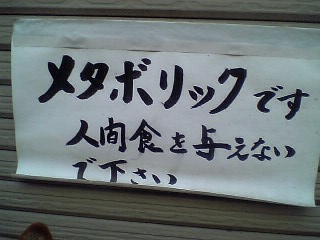 メタボリックです
人間食を与えない
で下さい